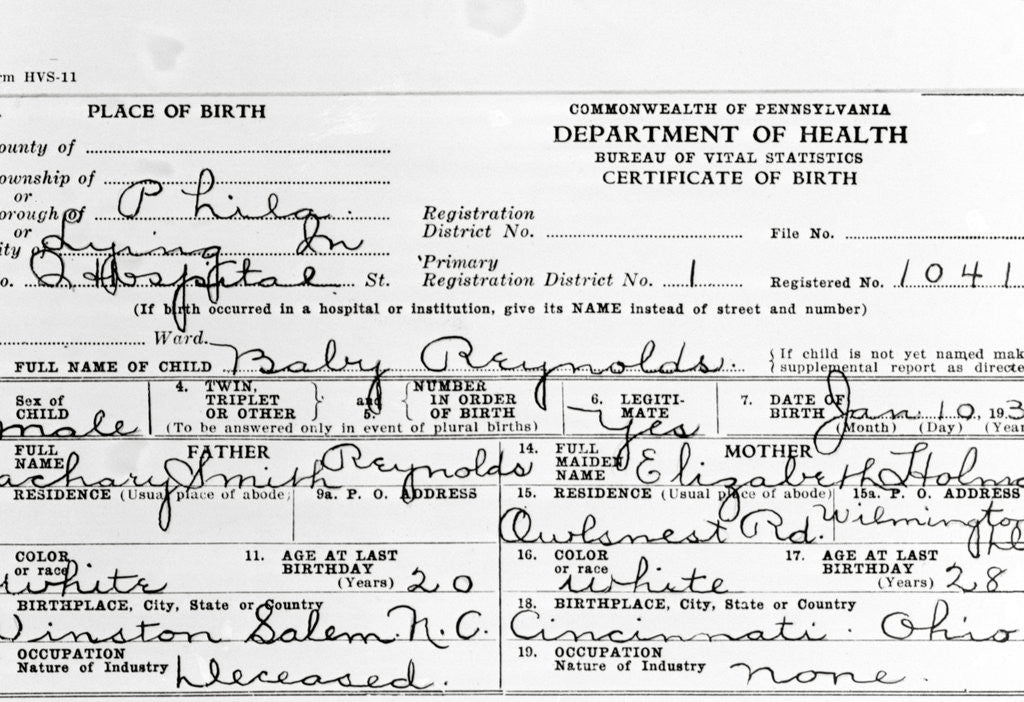 rm HVS-11
PLACE OF BIRTH
ounty of
ownship of
or
orough of Phila.
or
ity o Lying In
o. Hospital St.
(If birth occurred in a hospital or institution, give its NAME instead of street and number)
Ward.
COMMONWEALTH OF PENNSYLVANIA
DEPARTMENT OF HEALTH
BUREAU OF VITAL STATISTICS
CERTIFICATE OF BIRTH
Registration
District No.
File No.
Primary
Registration District No. 1
Registered No. 1041
FULL NAME OF CHILD Baby Reynolds.
If child is not yet named mak
supplemental report as directe
Sex of
CHILD
male
4. TWIN,
TRIPLET
OR OTHER
and
5.
NUMBER
IN ORDER
OF BIRTH
(To be answered only in event of plural births)
6. LEGITI-
MATE
Yes
7. DATE OF
BIRTH Jan. 10, 193
(Month) (Day) (Year
FULL
NAME
FATHER
achary Smith Reynolds
RESIDENCE (Usual place of abode)
9a. P. O. ADDRESS
COLOR
or race
white
11. AGE AT LAST
BIRTHDAY
(Years) 20
BIRTHPLACE, City, State or Country
Winston Salem. N.C.
OCCUPATION
Nature of Industry Deceased.
14. FULL
MAIDEN
NAME
MOTHER
Elizabeth Holma
15. RESIDENCE (Usual place of abode)
15a. P. O. ADDRESS
Owlsnest Rd. Wilmington
De
16. COLOR
or race
white
17. AGE AT LAST
BIRTHDAY
(Years) 28
18. BIRTHPLACE, City, State or Country
Cincinnati. Ohio
19. OCCUPATION
Nature of Industry none.